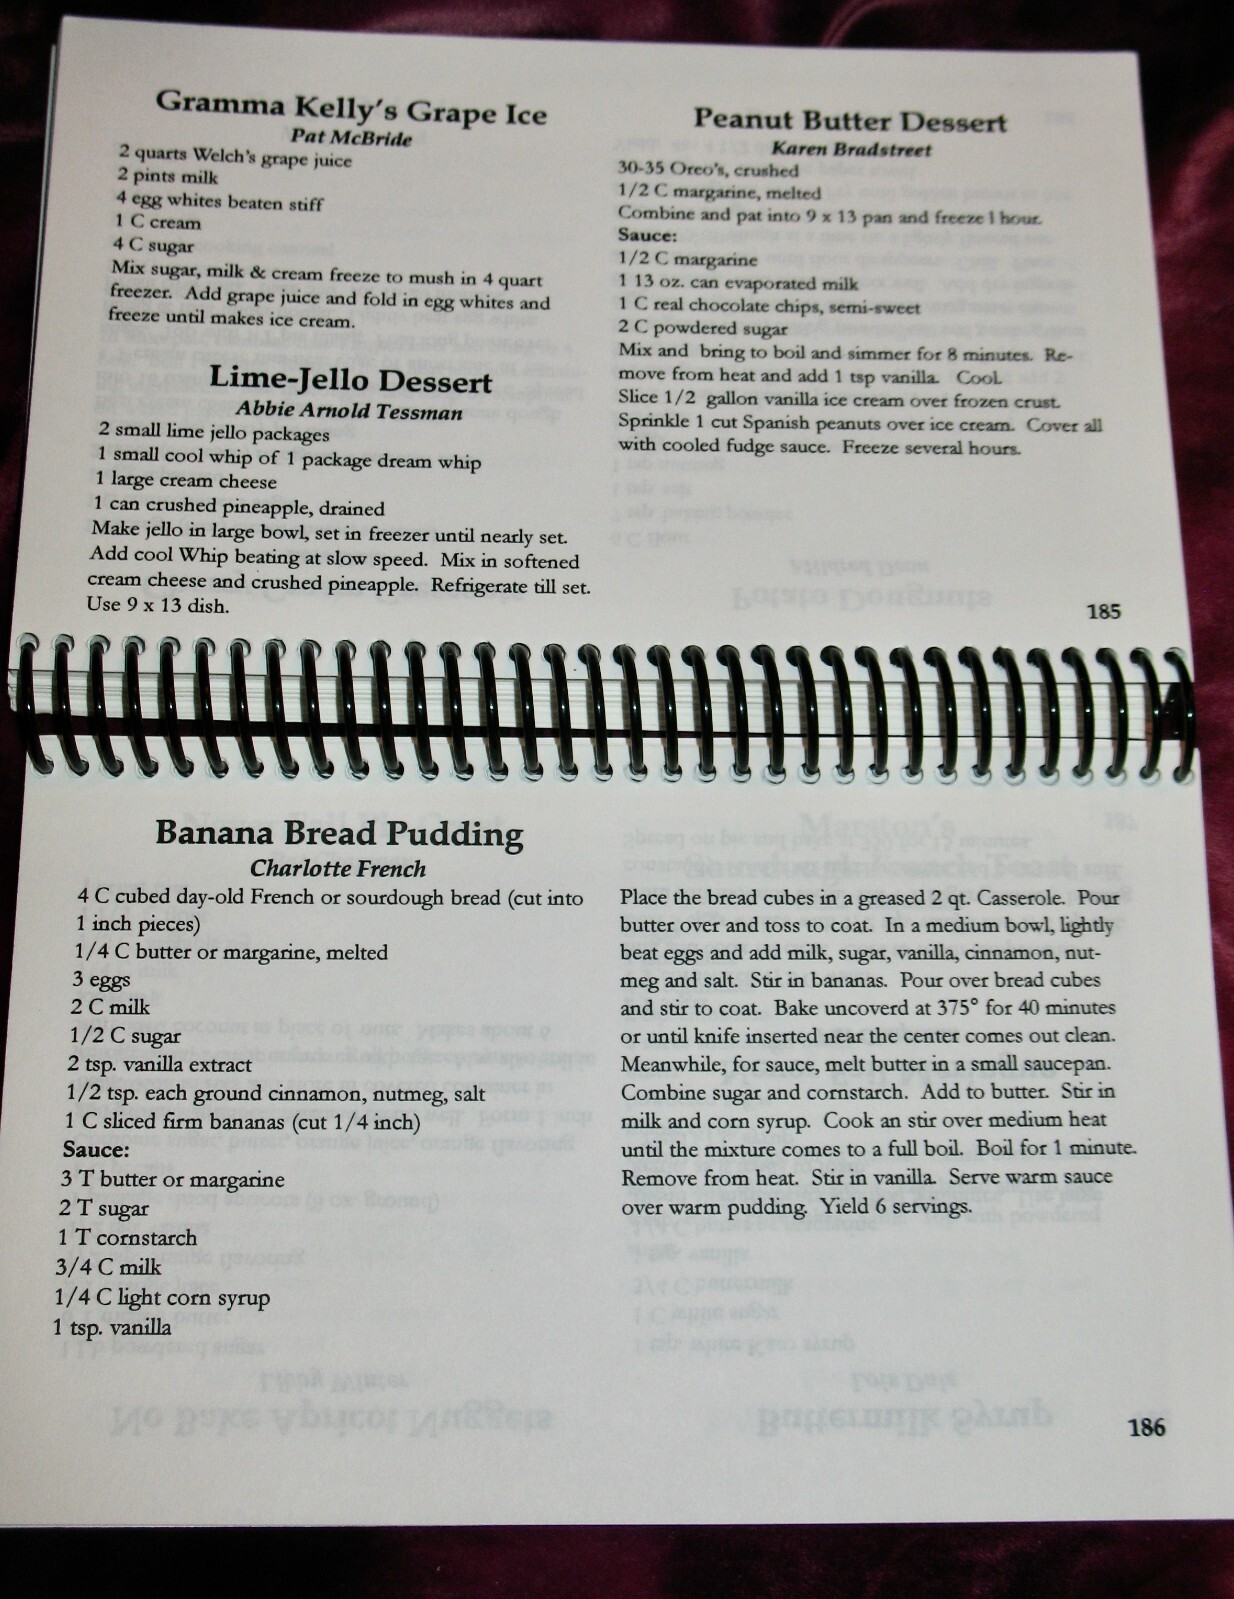 Gramma Kelly's Grape Ice
Pat McBride
2 quarts Welch's grape juice
2 pints milk
4 egg whites beaten stiff
1 C cream
4 C sugar
Mix sugar, milk & cream freeze to mush in 4 quart
freezer. Add grape juice and fold in egg whites and
freeze until makes ice cream.
Lime-Jello Dessert
Abbie Arnold Tessman
2 small lime jello packages
1 small cool whip of 1 package dream whip
1 large cream cheese
1 can crushed pineapple, drained
Make jello in large bowl, set in freezer until nearly set.
Add cool Whip beating at slow speed. Mix in softened
cream cheese and crushed pineapple. Refrigerate till set.
Use 9 x 13 dish.
Peanut Butter Dessert
Karen Bradstreet
30-35 Oreo's, crushed
1/2 C margarine, melted
Combine and pat into 9 x 13 pan and freeze 1 hour.
Sauce:
1/2 C margarine
1 13 oz. can evaporated milk
1 C real chocolate chips, semi-sweet
2 C powdered sugar
Mix and bring to boil and simmer for 8 minutes. Re-
move from heat and add 1 tsp vanilla. Cool.
Slice 1/2 gallon vanilla ice cream over frozen crust.
Sprinkle 1 cut Spanish peanuts over ice cream. Cover all
with cooled fudge sauce. Freeze several hours.
185
Banana Bread Pudding
Charlotte French
4 C cubed day-old French or sourdough bread (cut into
1 inch pieces)
1/4 C butter or margarine, melted
3 eggs
2 C milk
1/2 C sugar
2 tsp. vanilla extract
1/2 tsp. each ground cinnamon, nutmeg, salt
1 C sliced firm bananas (cut 1/4 inch)
Sauce:
3 T butter or margarine
2 T sugar
1 T cornstarch
3/4 C milk
1/4 C light corn syrup
1 tsp. vanilla
Place the bread cubes in a greased 2 qt. Casserole. Pour
butter over and toss to coat. In a medium bowl, lightly
beat eggs and add milk, sugar, vanilla, cinnamon, nut-
meg and salt. Stir in bananas. Pour over bread cubes
and stir to coat. Bake uncoverd at 375° for 40 minutes
or until knife inserted near the center comes out clean.
Meanwhile, for sauce, melt butter in a small saucepan.
Combine sugar and cornstarch. Add to butter. Stir in
milk and corn syrup. Cook an stir over medium heat
until the mixture comes to a full boil. Boil for 1 minute.
Remove from heat. Stir in vanilla. Serve warm sauce
over warm pudding. Yield 6 servings.
186